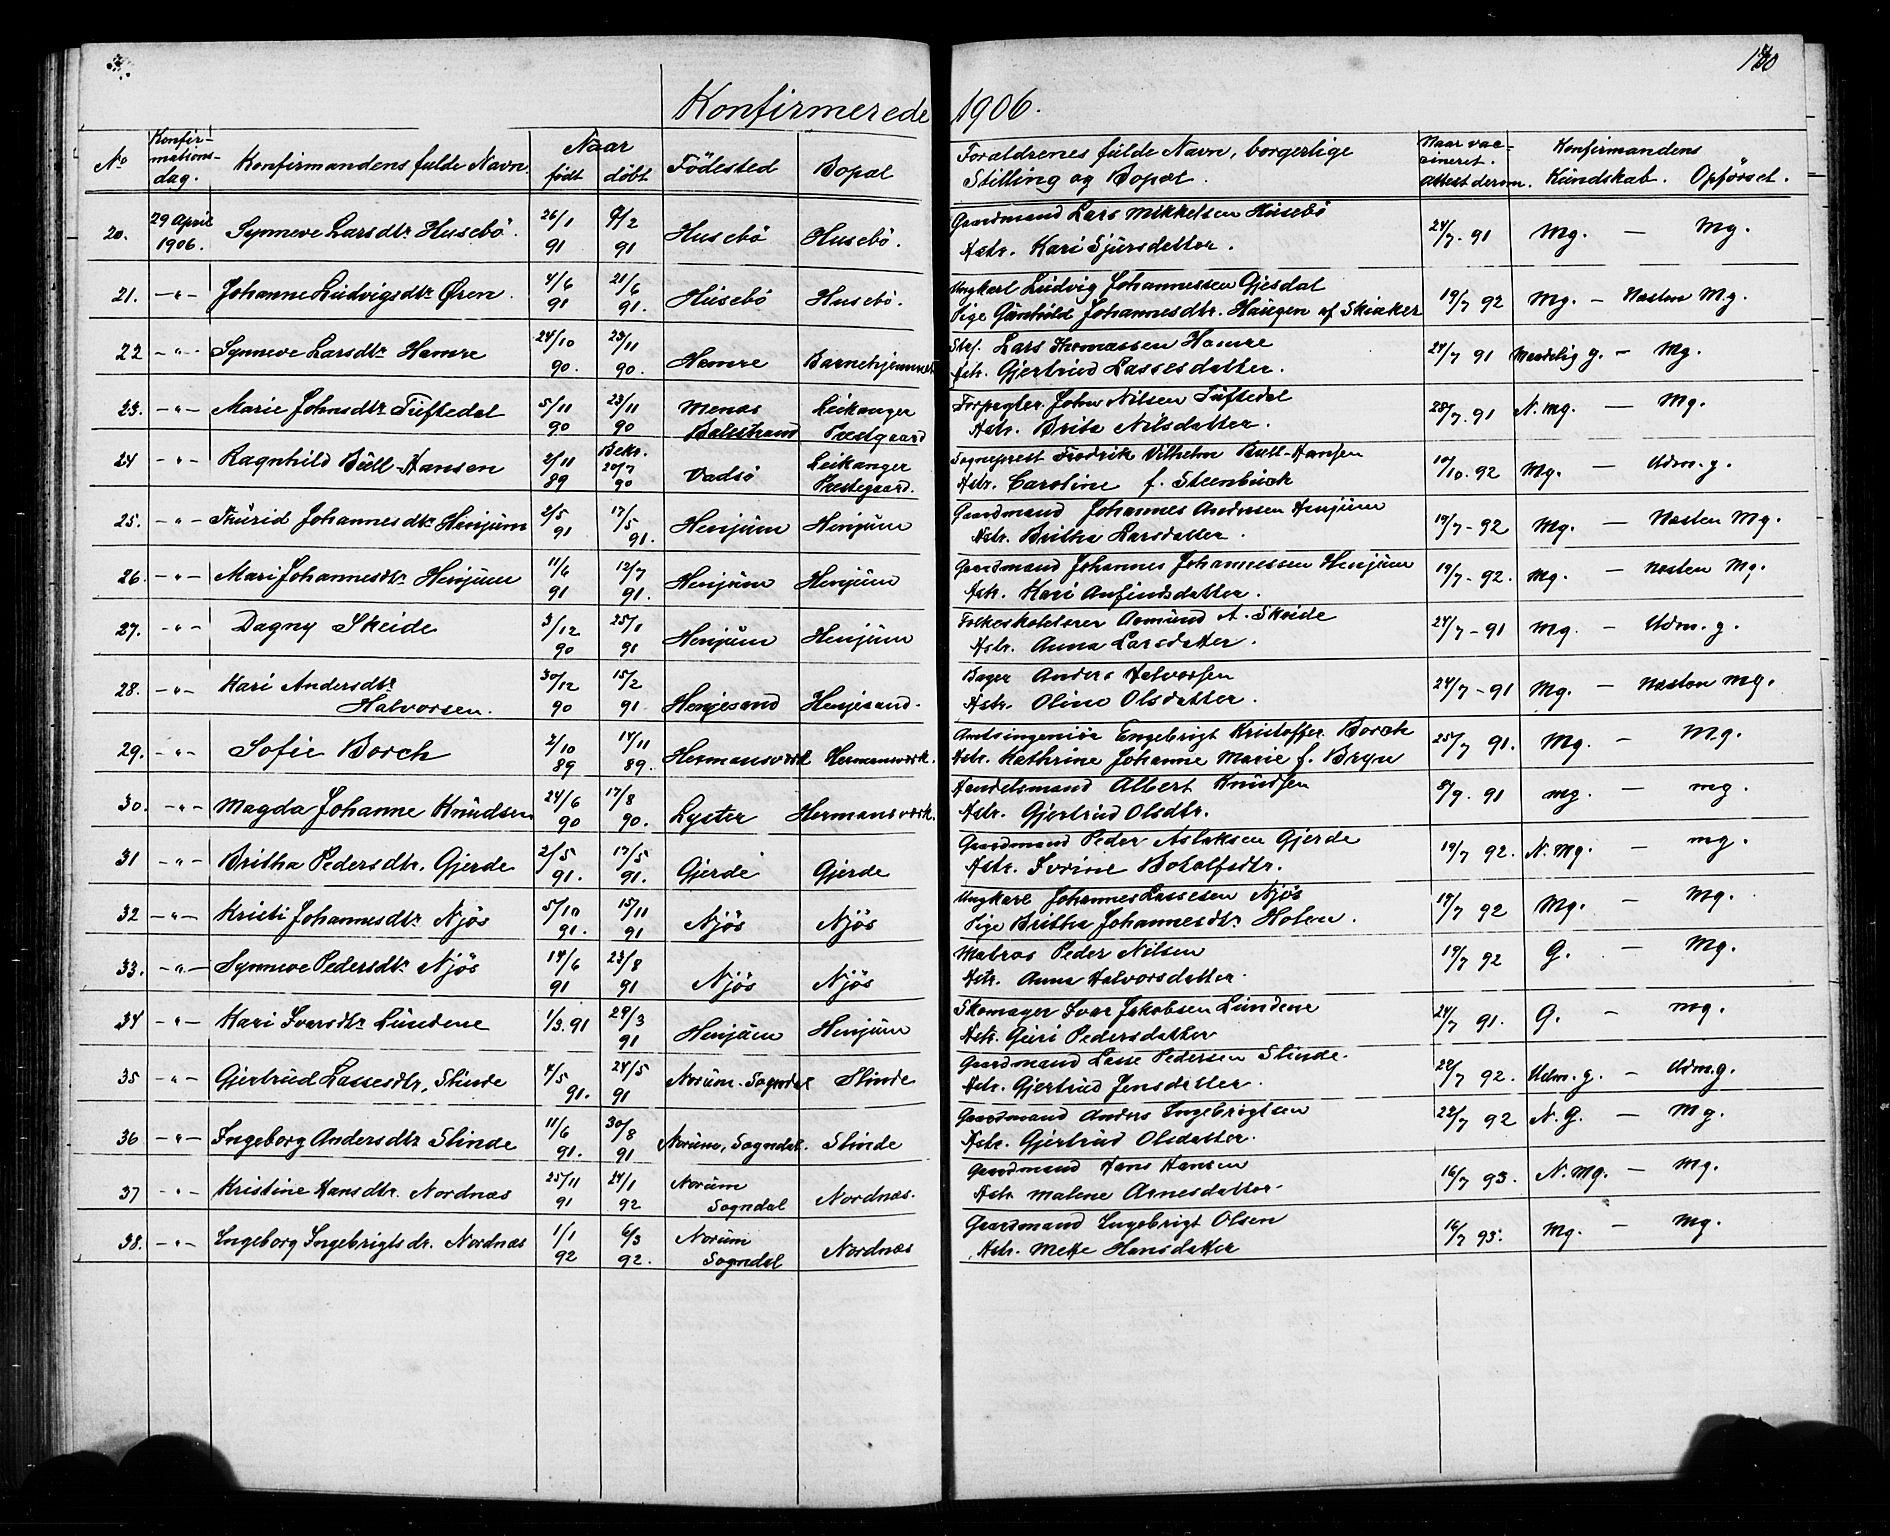 Konfirmerede 1906.
No Konfirmationsdag. Konfirmandens fulde Navn. Naar født døbt Födested Bopæl Forældrenes fulde Navn, borgerlige Stilling og Bopæl. Naar vaccineret. Attest derom. Konfirmandens Kundskab. Opförsel.
20. 29 April 1906. Synneve Larsdtr Husebö. 26/1 91 /2 91 Husebö Husebö. Gaardmand Lars Mikkelsen Husebö 24/7. 91 Mg. — Mg.
Hstr. Kari Sjursdatter.
21. —"— Johanne Ludvigsdtr Øren. 4/6 91 21/6 91. Husebö Husebö. Ungkarl Ludvig Johannessen Gjesdal 19/7 92 Mg. — Næsten Mg.
Pige Gunhild Johannesdtr. Haugen af Skiaker
22 —"— Synneve Larsdtr Hamre 24/10 90. 23/11 90. Hamre Barnehjemmet Strf. Lars Thomassen Hamre 24/7 91 Maadelig g. — Mg.
Hstr. Gjertrud Lassesdatter.
23. —"— Marie Johnsdtr Tuftedal 5/11 90 23/11 90 Menæs Balestrand Leikanger Prestgaard Forpagter John Nilsen Tuftedal 25/7. 91 N. Mg. — Mg.
Hstr. Brita Nilsdatter.
24 —"— Ragnhild Bull-Hansen 2/11 89 Bekr. 20/7 90 Vadsö Leikanger Prestegaard. Sogneprest Fredrik Vilhelm Bull-Hansen 10/10. 92 Mg. — Udm. g.
Hstr. Caroline f. Steenbuck
25. —"— Thurid Johannesdtr Henjum 2/5 91 17/5 91. Henjum Henjum Gaardmand Johannes Andersen Henjum 19/7 - 92 Mg. — Næsten Mg.
Hstr. Britha Larsdatter.
26. —"— Mari Johannesdtr Henjum 11/6 91 12/7 91. Henjum Henjum Gaardmand Johannes Johannessen Henjum 19/7 - 92. Mg. — Næsten Mg.
Hstr. Kari Anfindsdatter.
27. —"— Dagny Skeide 3/12 90 25/1 91 Henjum Henjum Folkeskolelærer Aamund A. Skeide 24/7 - 91 Mg — Udm. g.
Hstr. Anna Larsdatter.
28. —"— Kari Andersdtr Halvorsen. 30/12 90 15/2 91 Henjesand Henjesand. Bager Anders Halvorsen 24/7 - 91 Mg. — Næsten Mg.
Hstr. Oline Olsdatter.
29. —"— Sofie Borch 2/10 89 14/11 89. Hermansværk Hermansværk. Amtsingeniör Engebrigt Kristoffer Borch 25/7 91. Mg. — Mg.
Hstr. Kathrine Johanne Marie f. Bryn
30. —"— Magda Johanne Knudsen 24/6 90 17/8 90. Lyster Hermansværk. Handelsmand Albert Knudsen 8/9. 91 Mg. — Mg.
Hstr. Gjertrud Olsdtr.
31 —"— Britha Pedersdtr. Gjerde 2/5 91. 17/5 91. Gjerde Gjerde Gaardmand Peder Aslaksen Gjerde 19/7 92. N. Mg. — Mg.
Hstr. Ivrine Botolfsdtr.
32 —"— Kristi Johannesdtr Njös 5/10 91. 15/11 91 Njös Njös Ungkarl Johannes Lassesen Njös 19/7 92 Mg. — Mg.
Pige Britha Johannesdtr Holen.
33. —"— Synneve Pedersdtr Njös 14/6 91 23/8 91 Njös Njös Matros Peder Nilsen 19/7 92 G. — Mg.
Hstr. Anna Halvorsdatter.
34 —"— Kari Ivarsdtr Lundene 1/3. 91 29/3 91 Henjum Henjum Skomager Ivar Jakobsen Lundene 24/7 91. G. — Mg.
Hstr. Guri Pedersdatter
35 —"— Gjertrud Lassesdtr. Slinde 4/5 91. 24/5 91 Norum. Sogndal Slinde Gaardmand Lasse Pedersen Slinde. 20/7 92. Udm. g. — Udm. g.
Hstr. Gjertrud Jensdatter.
36 —"— Ingeborg Andersdtr Slinde 11/6 91. 30/8 91 Norum, Sogndal. Slinde Gaardmand Anders Ingebrigtsen 22/7 92 N. G. — Mg.
Hstr. Gjertrud Olsdatter.
37 —"— Kristine Hansdtr. Nordnæs 25/11 91 24/1 92 Norum Sogndal Nordnæs. Gaardmand Hans Hansen 16/7 93. N. Mg. — Mg.
Hstr Malene Arnesdatter.
38. —"— Ingeborg Ingebrigtsdr. Nordnæs 1/1 92 6/3 92. Norum Sogndal Nordnæs Gaardmand Ingebrigt Olsen 16/7 93. Mg. — Mg.
Hstr. Mette Hansdatter